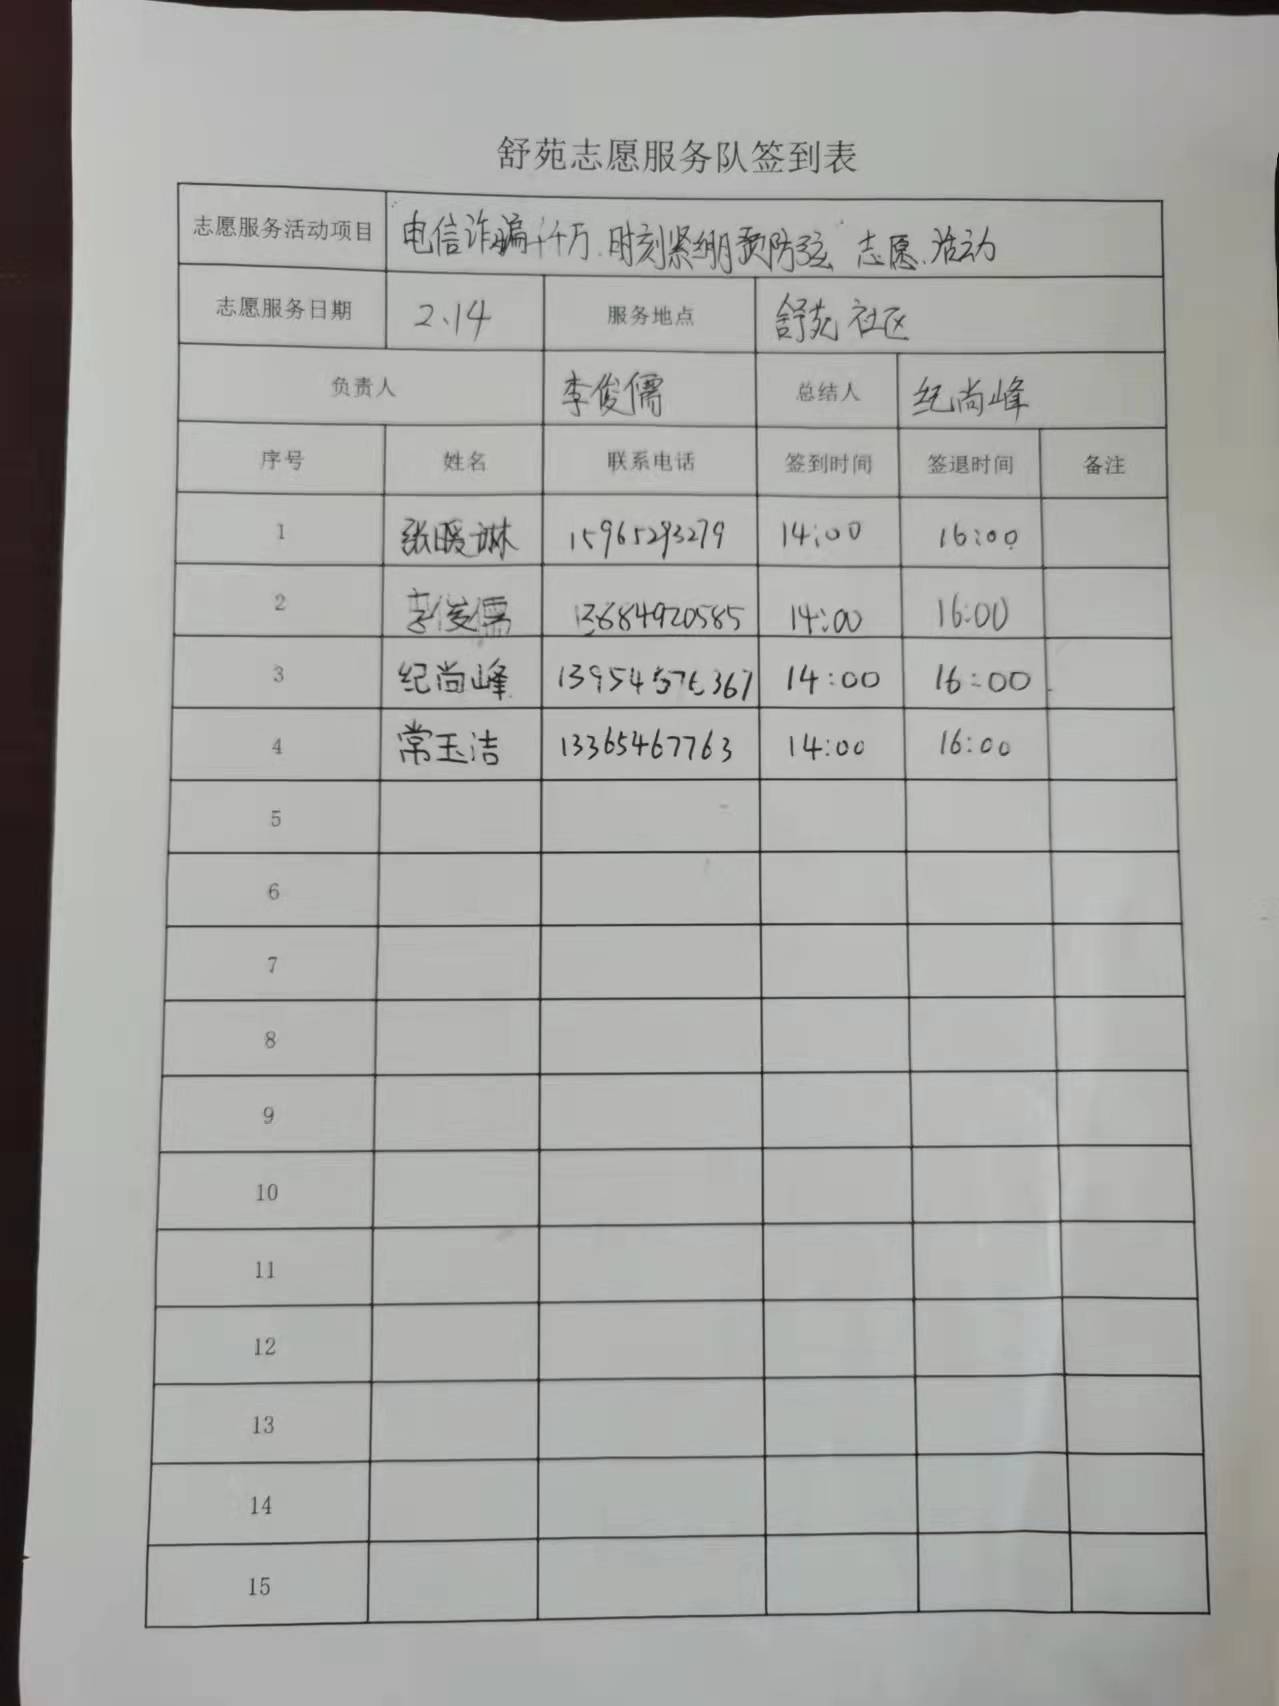 舒苑志愿服务队签到表
志愿服务活动项目 电信诈骗千万.时刻紧绷预防弦 志愿.活动
志愿服务日期 2.14 服务地点 舒苑社区
负责人 李俊儒 总结人 纪尚峰
序号 姓名 联系电话 签到时间 签退时间 备注
1 张暖琳 15965293279 14:00 16:00
2 李俊儒 13684920585 14:00 16:00
3 纪尚峰 14:00 16:00
4 常玉洁 13365467763 14:00 16:00
5
6
7
8
9
10
11
12
13
14
15